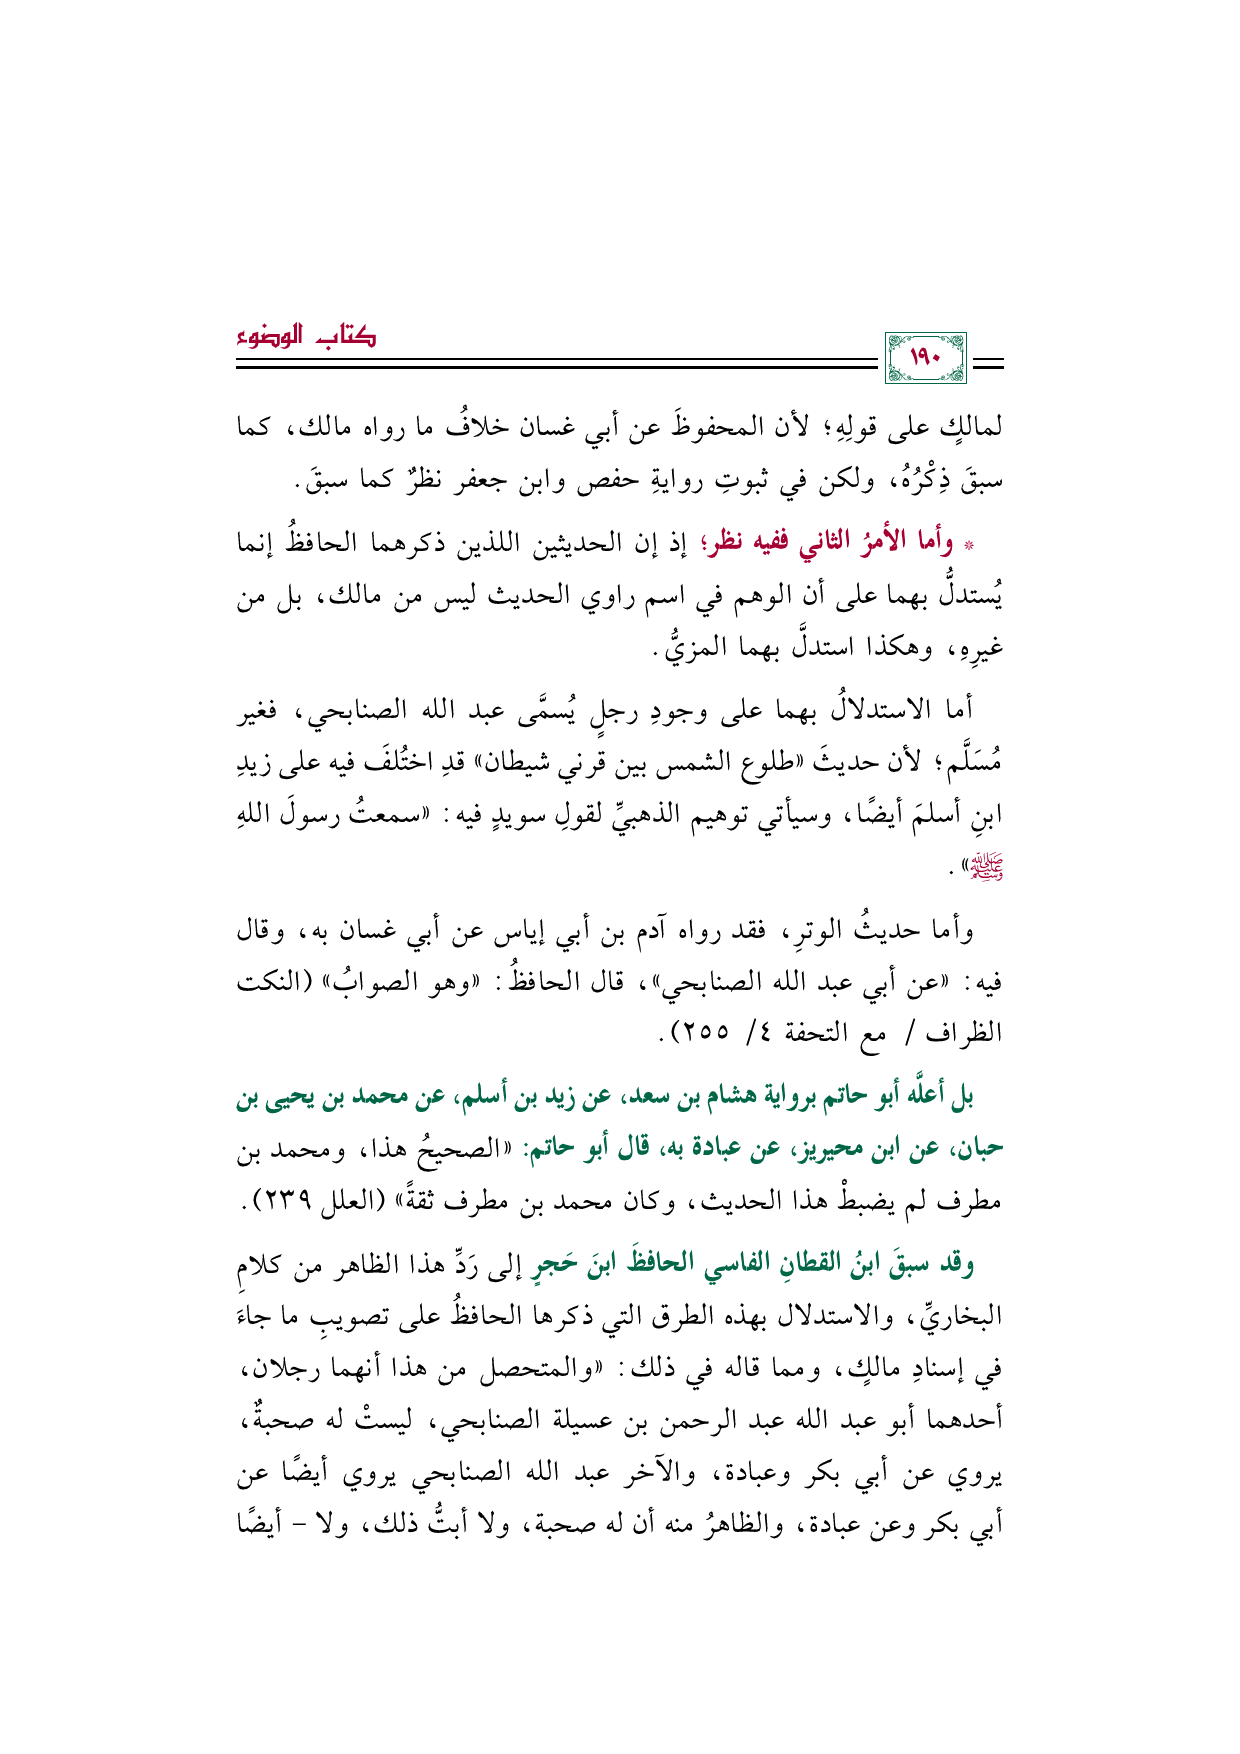 كتاب الوضوء
١٩٠
لمالكٍ على قولِهِ؛ لأن المحفوظَ عن أبي غسان خلافُ ما رواه مالك، كما
سبقَ ذِكْرُهُ، ولكن في ثبوتِ روايةِ حفص وابن جعفر نظرٌ كما سبقَ.
* وأما الأمرُ الثاني ففيه نظر؛ إذ إن الحديثين اللذين ذكرهما الحافظُ إنما
يُستدلُّ بهما على أن الوهم في اسم راوي الحديث ليس من مالك، بل من
غيرِهِ، وهكذا استدلَّ بهما المزيُّ.
أما الاستدلالُ بهما على وجودِ رجلٍ يُسمَّى عبد الله الصنابحي، فغير
مُسَلَّم؛ لأن حديثَ «طلوع الشمس بين قرني شيطان» قدِ اختُلفَ فيه على زيدِ
ابنِ أسلمَ أيضًا، وسيأتي توهيم الذهبيِّ لقولِ سويدٍ فيه: «سمعتُ رسولَ اللهِ
ﷺ».
وأما حديثُ الوترِ، فقد رواه آدم بن أبي إياس عن أبي غسان به، وقال
فيه: «عن أبي عبد الله الصنابحي»، قال الحافظُ: «وهو الصوابُ» (النكت
الظراف / مع التحفة ٤/ ٢٥٥).
بل أعلَّه أبو حاتم برواية هشام بن سعد، عن زيد بن أسلم، عن محمد بن يحيى بن
حبان، عن ابن محيريز، عن عبادة به، قال أبو حاتم: «الصحيحُ هذا، ومحمد بن
مطرف لم يضبطْ هذا الحديث، وكان محمد بن مطرف ثقةً» (العلل ٢٣٩).
وقد سبقَ ابنُ القطانِ الفاسي الحافظَ ابنَ حَجرٍ إلى رَدِّ هذا الظاهر من كلامِ
البخاريِّ، والاستدلال بهذه الطرق التي ذكرها الحافظُ على تصويبِ ما جاءَ
في إسنادِ مالكٍ، ومما قاله في ذلك: «والمتحصل من هذا أنهما رجلان،
أحدهما أبو عبد الله عبد الرحمن بن عسيلة الصنابحي، ليستْ له صحبةٌ،
يروي عن أبي بكر وعبادة، والآخر عبد الله الصنابحي يروي أيضًا عن
أبي بكر وعن عبادة، والظاهرُ منه أن له صحبة، ولا أبتُّ ذلك، ولا – أيضًا